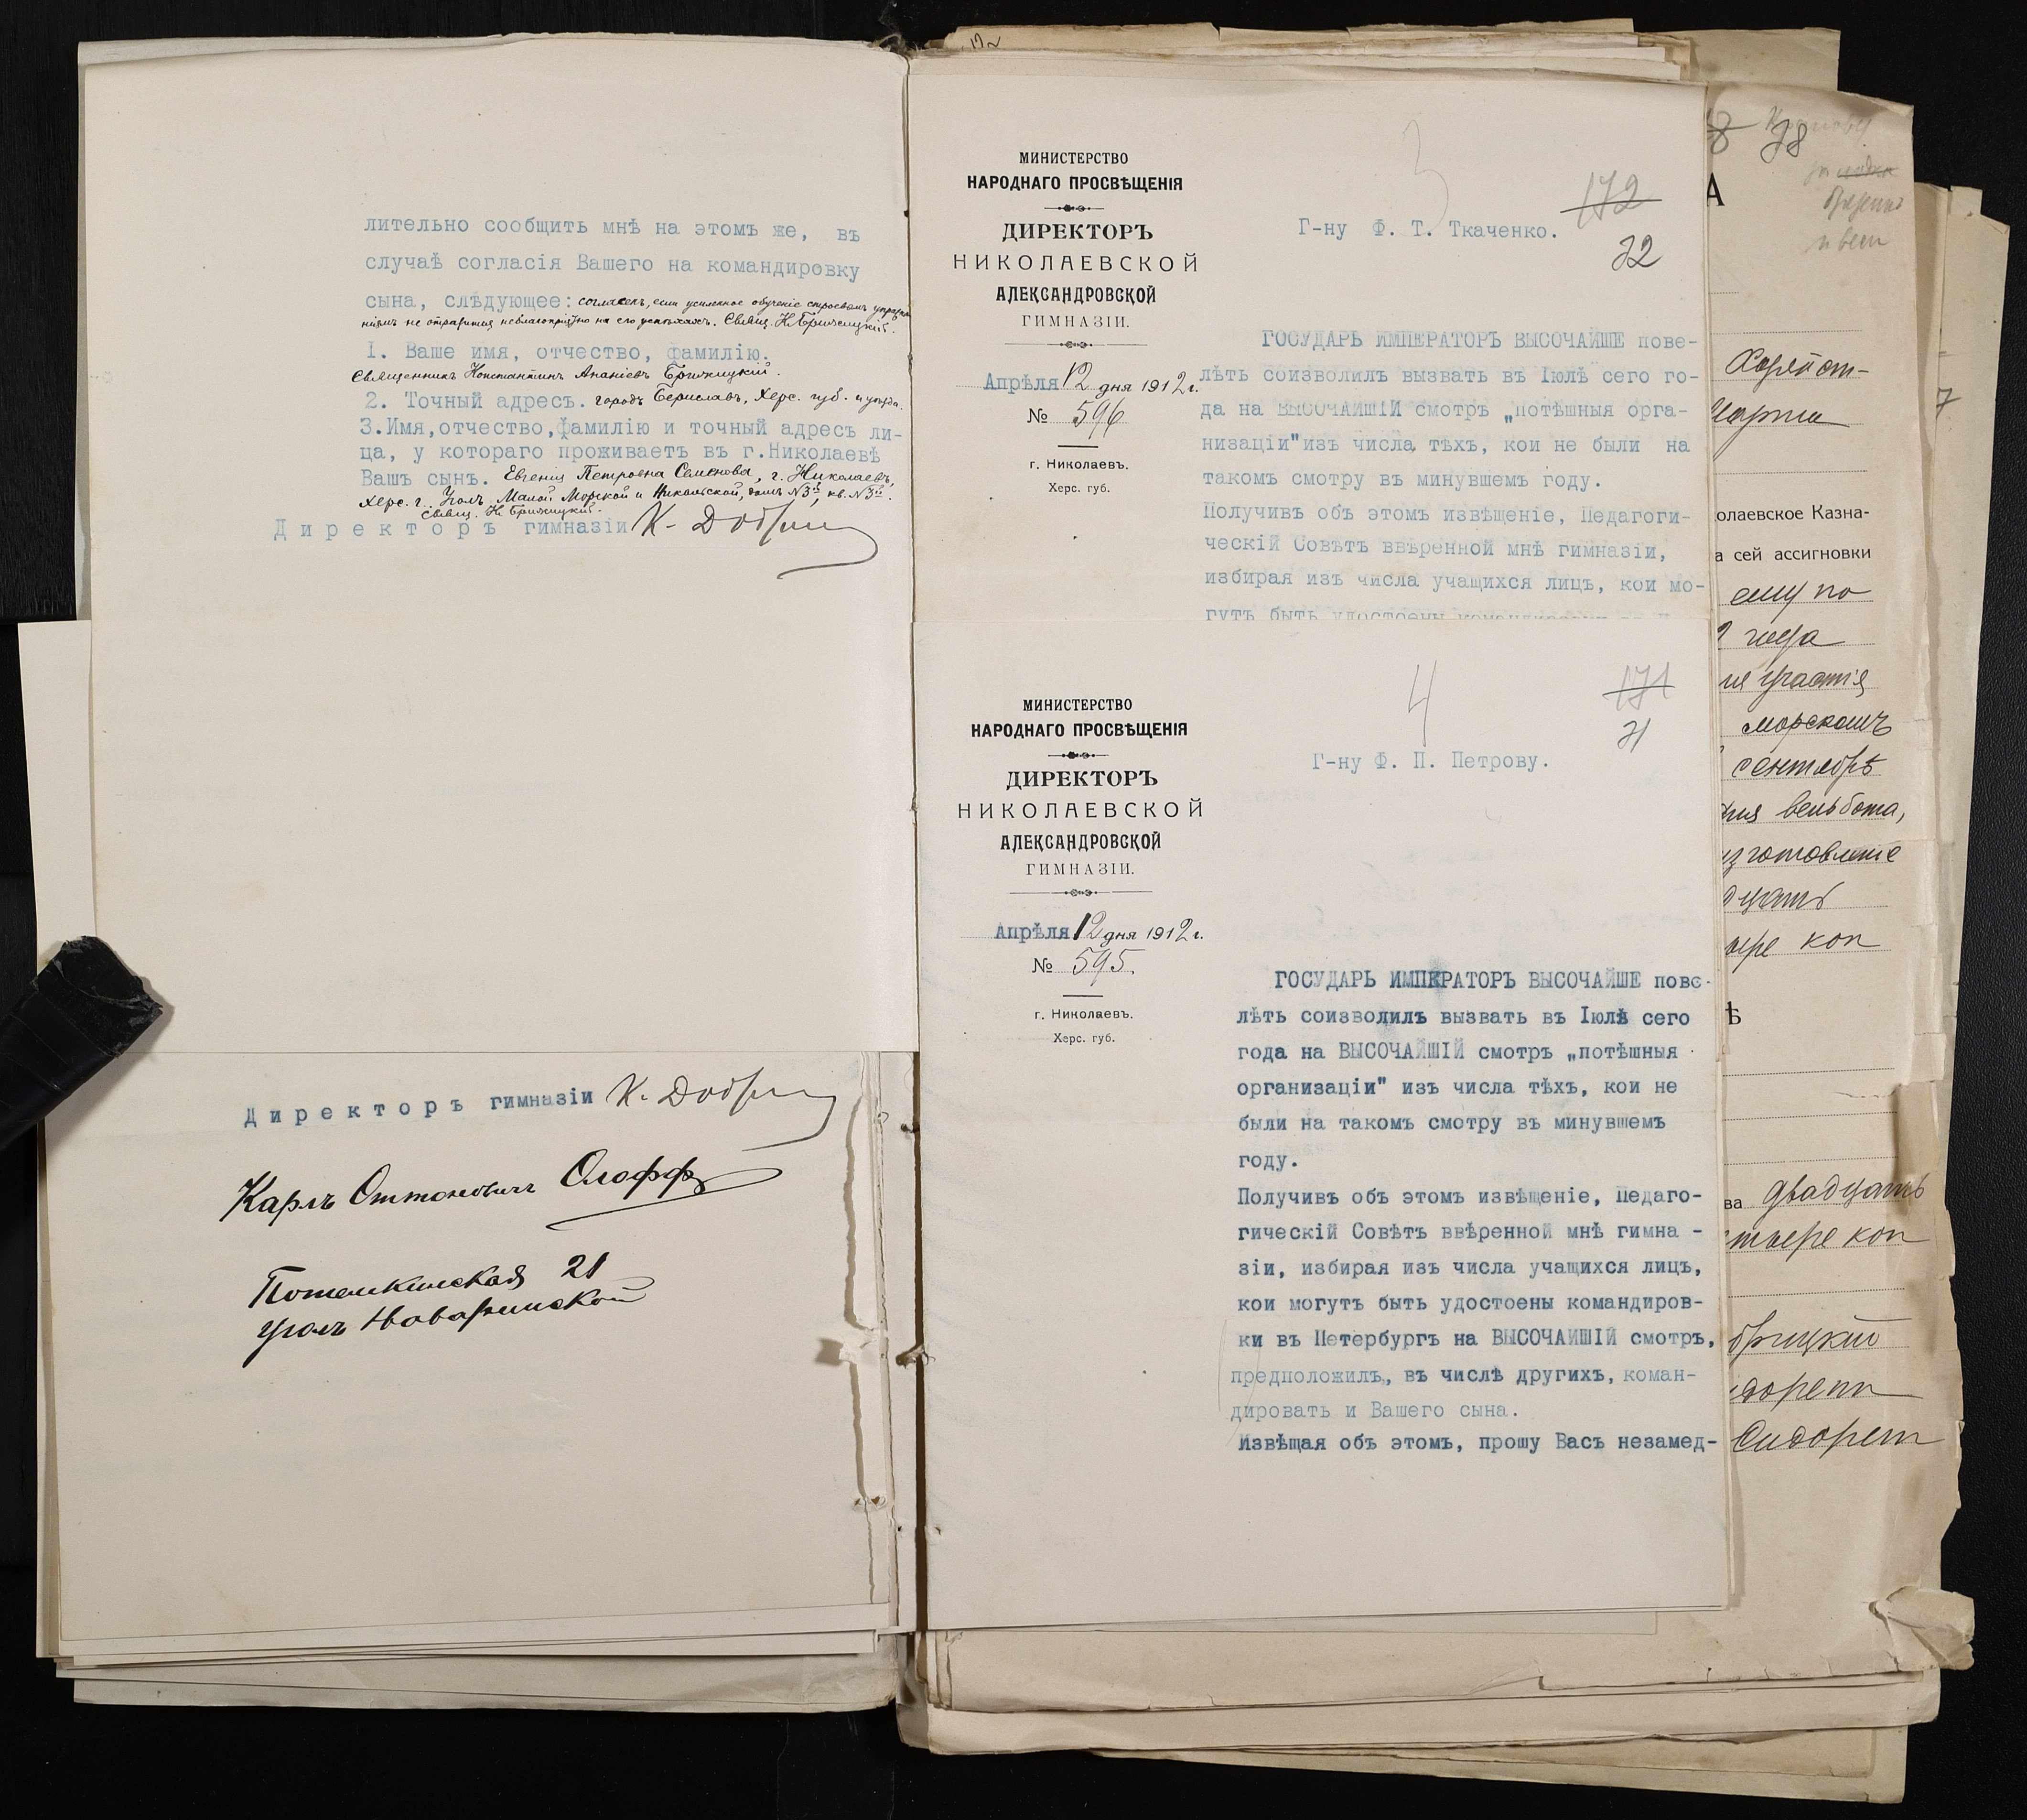 лительно сообщить мнѣ на этомъ же, въ
случаѣ согласія Вашего на командировку
сына, слѣдующее: согласенъ, если усиленное обученіе строевымъ упраж
ніямъ не отразится неблагопріятно на его успѣхахъ. Свящ. К. Брижицкій.
1. Ваше имя, отчество, фамилію.
Священникъ Константинъ Ананіевъ Брижицкій.
2. Точный адресъ. городъ Бериславъ, Херс. губ. и уѣзда.
3.Имя,отчество,фамилію и точный адресъ ли-
ца, у котораго проживаетъ въ г.Николаевѣ
Вашъ сынъ. Евгенія Петровна Семенова, г. Николаевъ,
Херс. г. Уголъ Малой Морской и Никольской, домъ № 3й, кв. № 3й.
Свящ. К. Брижицкій.
Директоръ гимназіи К.
Директоръ гимназіи К.
Карлъ Оттоновичъ Олофф
Потемкинская 21
уголъ Наваринской
172
32
МИНИСТЕРСТВО
НАРОДНАГО ПРОСВѢЩЕНІЯ
ДИРЕКТОРЪ
НИКОЛАЕВСКОЙ
АЛЕКСАНДРОВСКОЙ
ГИМНАЗІИ.
Апрѣля 12 дня 1912 г.
№ 596
г. Николаевъ.
Херс. губ.
3
Г-ну Ф. Т. Ткаченко.
ГОСУДАРЬ ИМПЕРАТОРЪ ВЫСОЧАЙШЕ пове-
лѣть соизволилъ вызвать въ Іюлѣ сего го-
да на ВЫСОЧАЙШІЙ смотръ „потѣшныя орга-
низаціи"изъ числа тѣхъ, кои не были на
такомъ смотру въ минувшемъ году.
Получивъ объ этомъ извѣщеніе, Педагоги-
ческій Совѣтъ ввѣренной мнѣ гимназіи,
избирая изъ числа учащихся лицъ, кои мо-
гутъ быть удостоены
171
31
МИНИСТЕРСТВО
НАРОДНАГО ПРОСВѢЩЕНІЯ
ДИРЕКТОРЪ
НИКОЛАЕВСКОЙ
АЛЕКСАНДРОВСКОЙ
ГИМНАЗІИ.
Апрѣля 12 дня 1912 г.
№ 595.
г. Николаевъ.
Херс. губ.
4
Г-ну Ф. П. Петрову.
ГОСУДАРЬ ИМПЕРАТОРЪ ВЫСОЧАЙШЕ пове-
лѣть соизволилъ вызвать въ Іюлѣ сего
года на ВЫСОЧАЙШІЙ смотръ „потѣшныя
организаціи" изъ числа тѣхъ, кои не
были на такомъ смотру въ минувшемъ
году.
Получивъ объ этомъ извѣщеніе, Педаго-
гическій Совѣтъ ввѣренной мнѣ гимна -
зіи, избирая изъ числа учащихся лицъ,
кои могутъ быть удостоены командиров-
ки въ Петербургъ на ВЫСОЧАЙШІЙ смотръ,
предположилъ, въ числѣ другихъ, коман-
дировать и Вашего сына.
Извѣщая объ этомъ, прошу Васъ незамед-
38
А
Хозяйст-
Марта
олаевское Казна-
а сей ассигновки
ему по
года
участія
морскомъ
сентябрѣ
вельбота,
изготовленіе
коп
ѣ
ва двадцать
коп